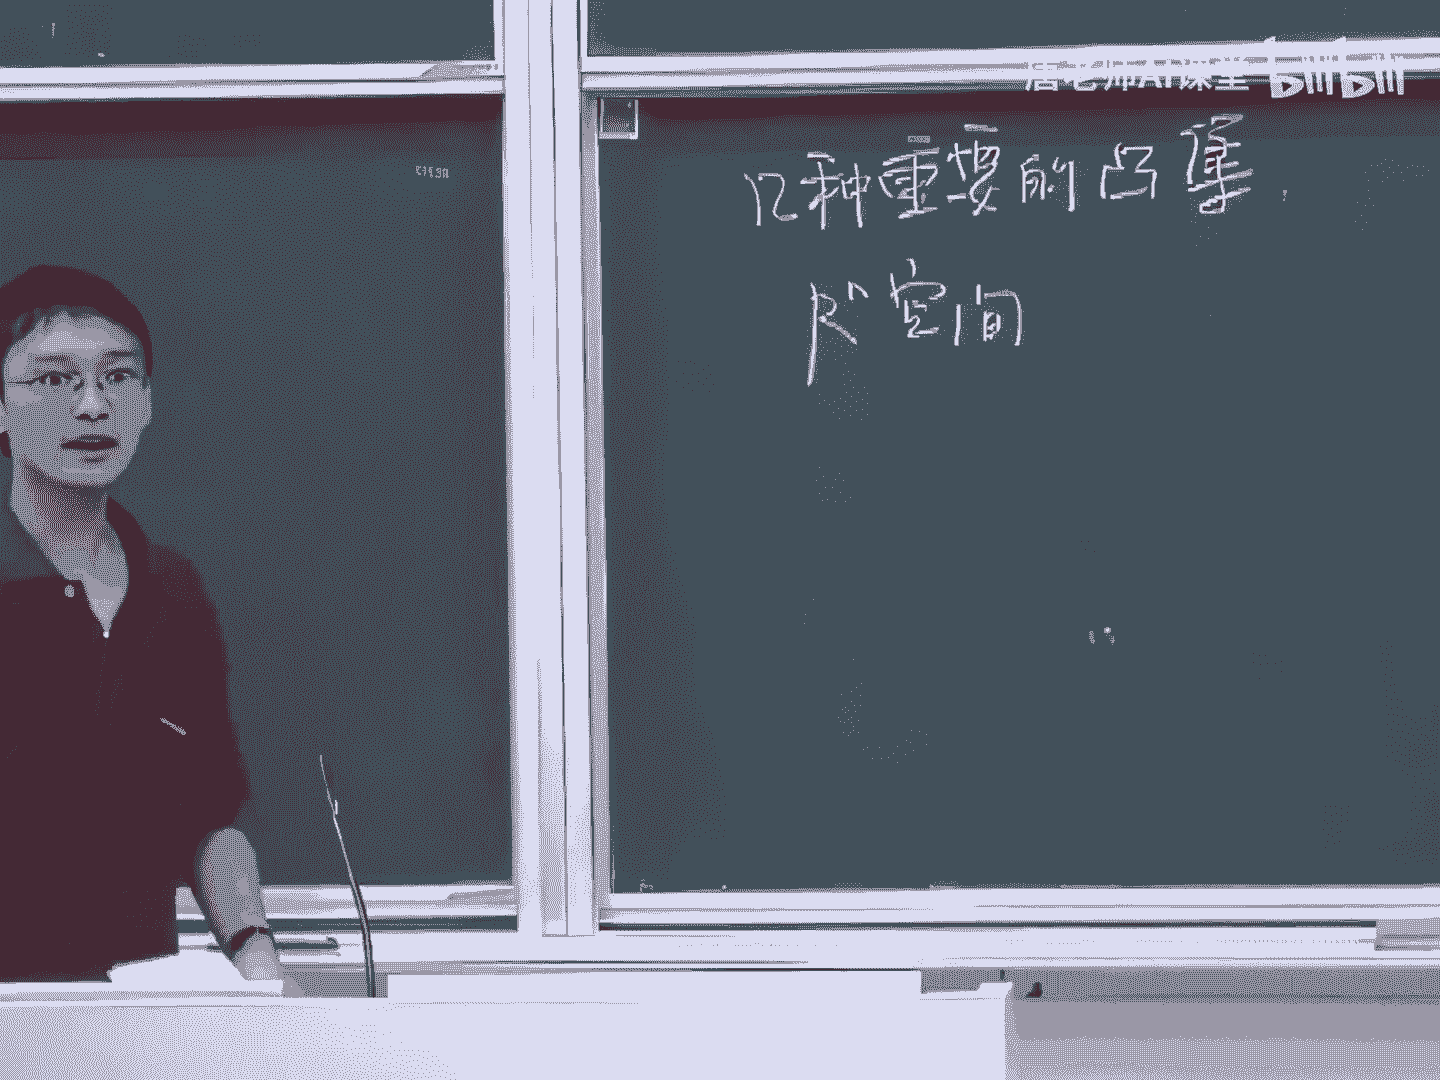 唐老师AI课堂 bilibili
几种重要的凸集
Rⁿ空间